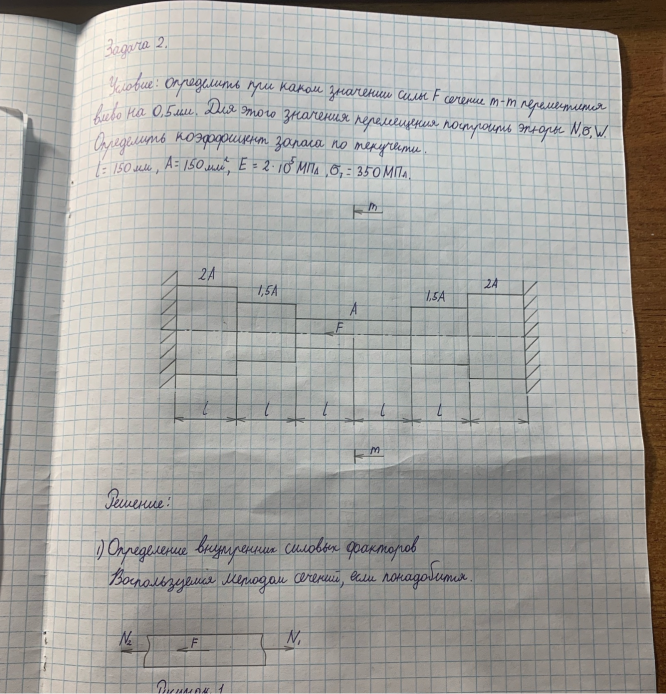 Задача 2.
Условие: определить при каком значении силы F сечение m-m переместится
влево на 0,5мм. Для этого значения перемещения построить эпюры N,σ,W.
Определить коэффициент запаса по текучести.
l = 150 мм, A = 150 мм², E = 2·10⁵ МПа, σт = 350 МПа.
m
2A
1,5A
A
1,5A
2A
F
l l l l l
m
Решение:
1) Определение внутренних силовых факторов
Воспользуемся методом сечений, если понадобится.
N₂ F N₁
Рисунок 1